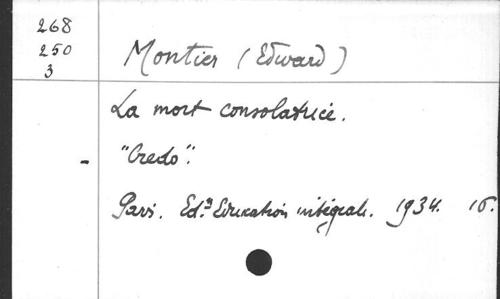 268
250
3
Montier (Edward)
La mort consolatrice.
- "Credo".
Paris. Ed.ˢ Education intégrale. 1934. 16.